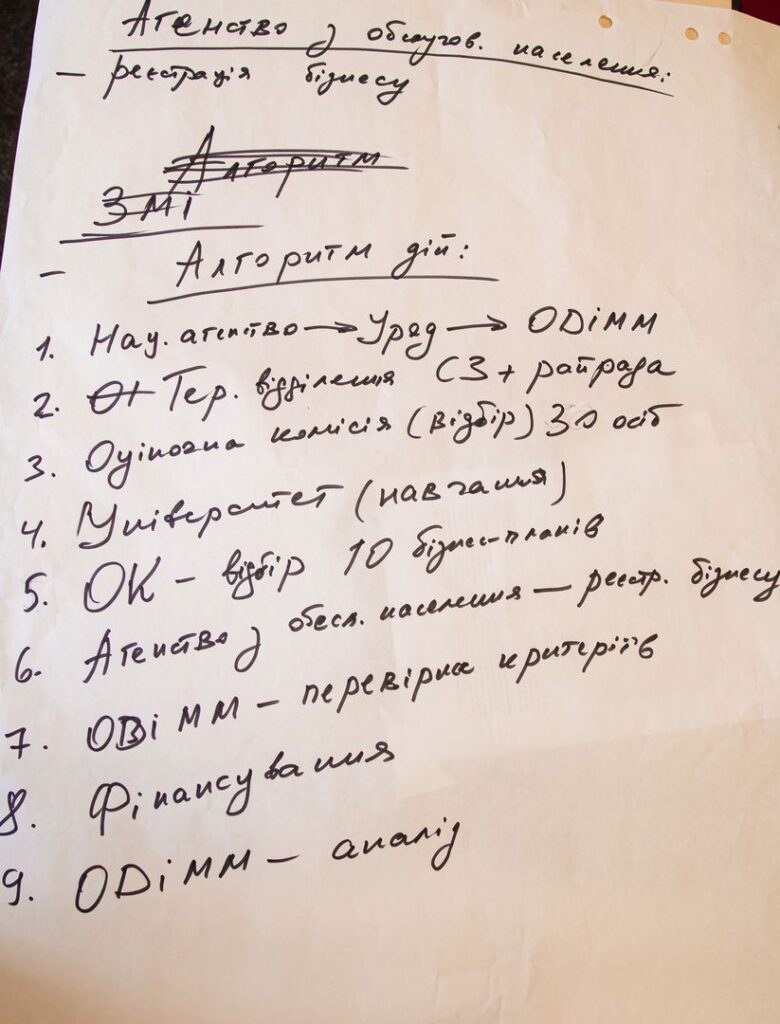 Агенство з обслугов. населення:
— реєстрація бізнесу
Алгоритм
ЗМІ
— Алгоритм дій:
1. Нац. агенство → Уряд → ОДіММ
2. От Тер. відділення СЗ + райрада
3. Оціночна комісія (відбір) 30 осіб
4. Університет (навчання)
5. ОК – відбір 10 бізнес-планів
6. Агенство з обсл. населення — реєстр. бізнесу
7. ОВіММ – перевірка критеріїв
8. Фінансування
9. ОДіММ – аналіз